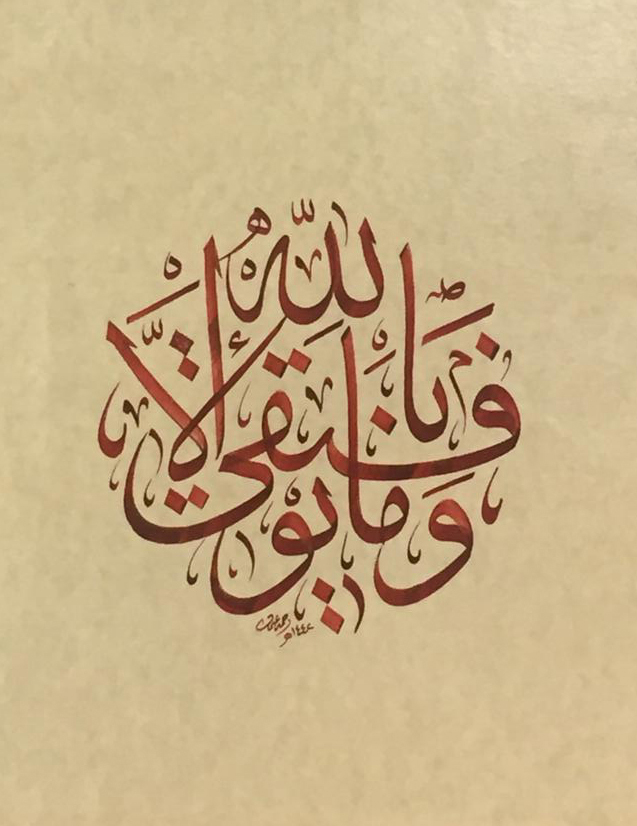 وما توفيقي إلا بالله
١٤٤٢هـ